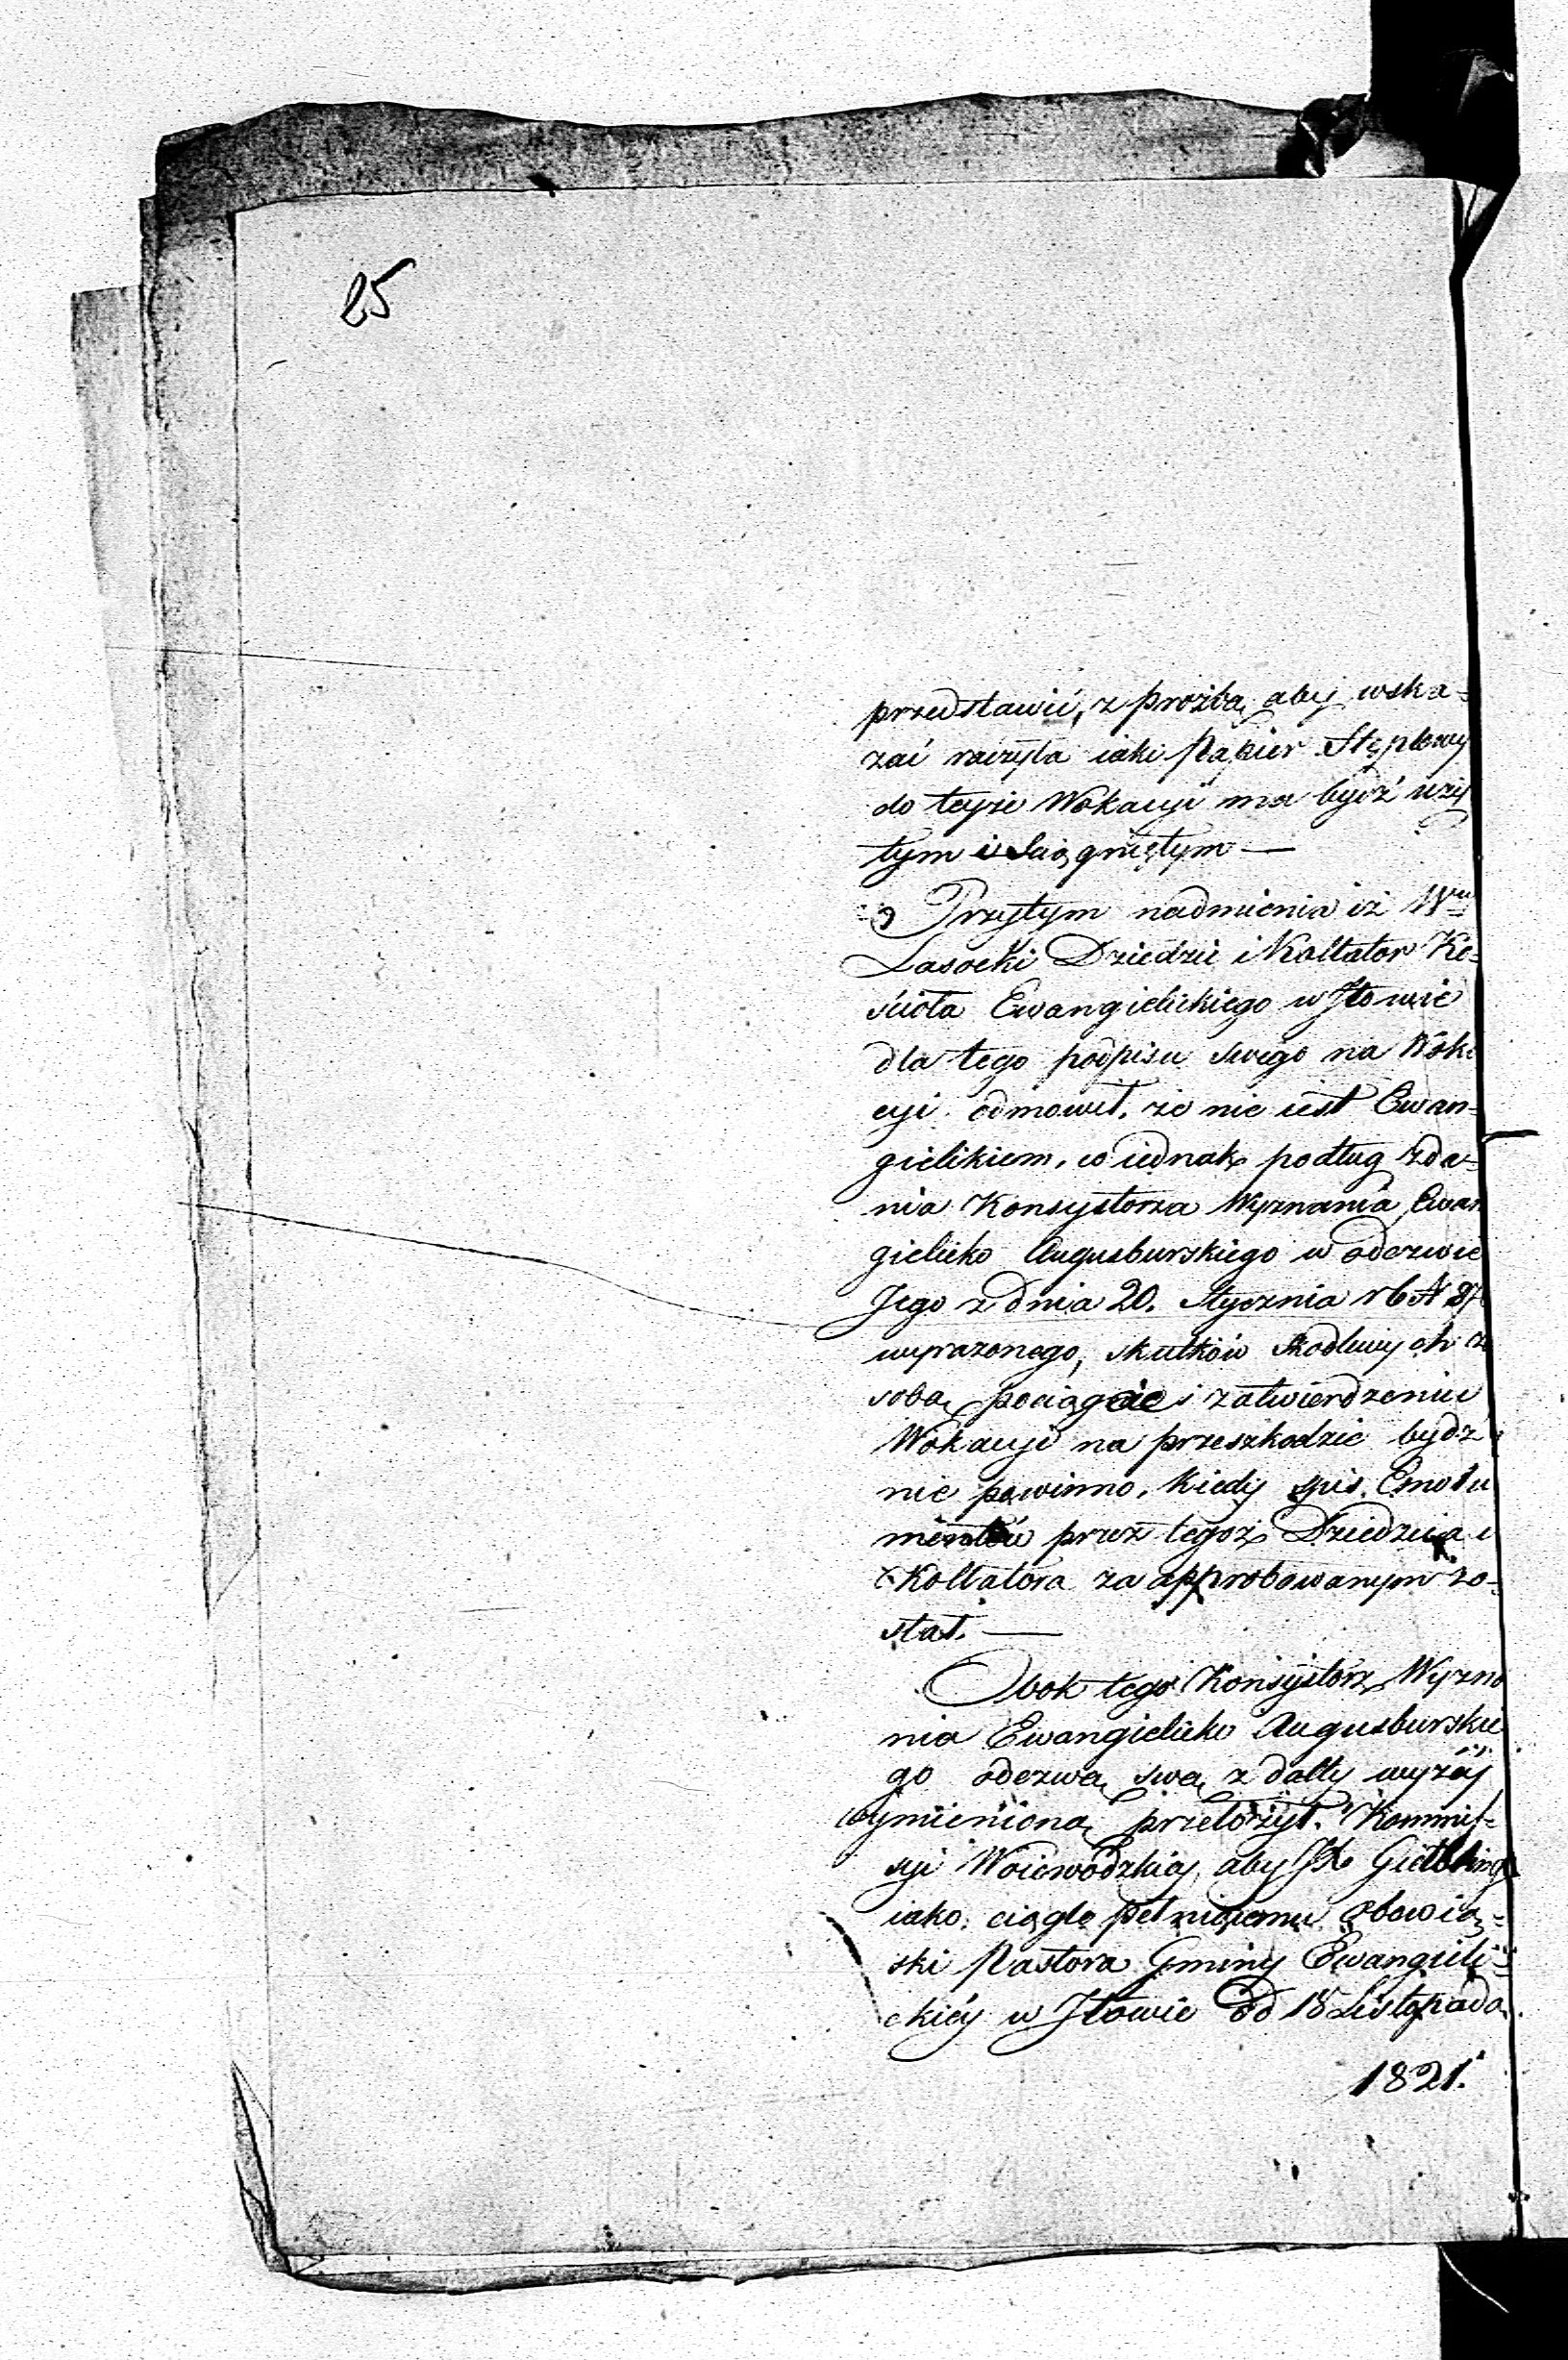 25
przedstawić, z prożbą aby wska=
zać raczyła iaki Papier Stęplowy
do teyże Wokacyi ma bydź uży
tym i sciągniętym —
Przytym nadmienia iż W
Lasocki Dziedzic i Kollator Ko=
ścioła Ewangielickiego w Iłowie
dla tego podpisu swego na Woka
cyi odmowił, że nie iest Ewan=
gielikiem, co iednak podług zda=
nia Konsystorza Wyznania Ewan
gielicko Augusburskiego w odezwie
Jego z dnia 20. Stycznia r b N
wyrażonego, skutków skodliwych za
sobą pociągać i zatwierdzeniu
Wokacyi na przeszkodzie bydź
nie powinno, kiedy spis Emolu
mentów przez tegoż Dziedzica i
Kollatora za approbowanym zo=
stał. —
Obok tego Konsystorz Wyzna
nia Ewangielicko Augusburskie
go odezwą swą z datty wyżéj
wymienioną przełożył Kommis=
syi Woiewódzkiéj aby JX
iako ciągle pełniącemu obowią=
ski Pastora Gminy Ewangieli=
ckiéy w Iłowie od 18 Listopada
1821.